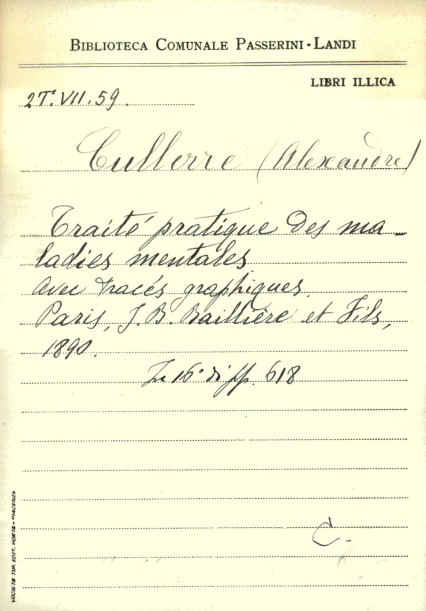 BIBLIOTECA COMUNALE PASSERINI-LANDI
LIBRI ILLICA
2T.VII.59.
Cullerre (Alexandre)
Traité pratique des ma-
ladies mentales
avec tracés graphiques.
Paris, J. B. Baillière et Fils,
1890.
In 16° di pp. 618
C.